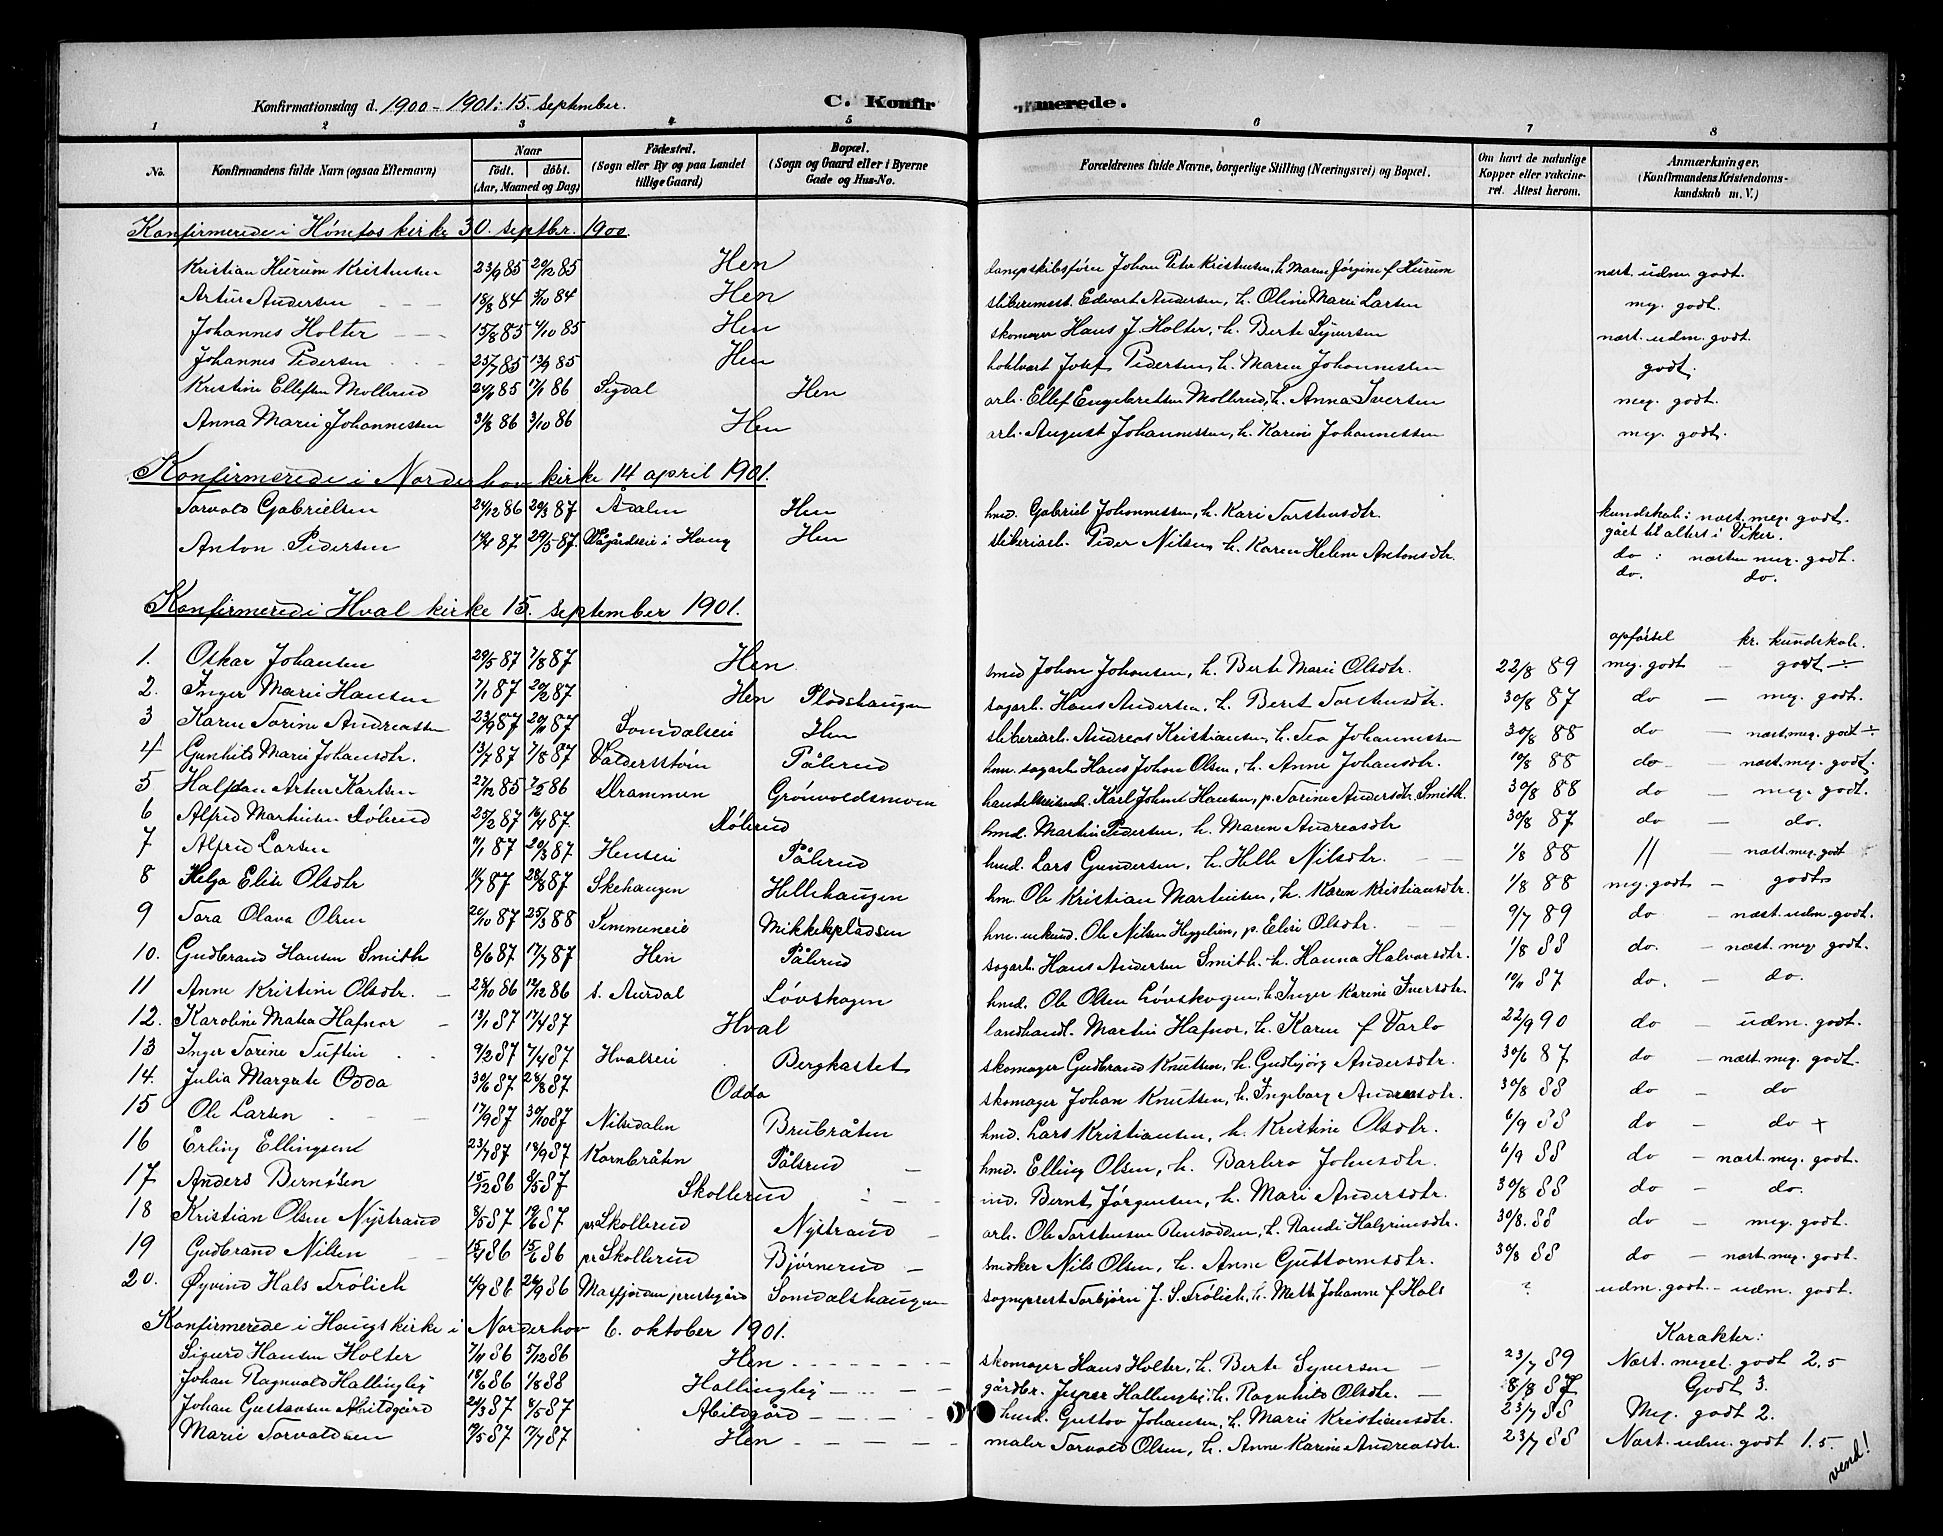 Konfirmationsdag d. 1900 - 1901: 15. september.
C. Konfirmerede.
1 2 3 4 5 6 7 8
No. Konfirmandens fulde Navn (ogsaa Efternavn) Naar født. døbt. (Aar, Maaned og Dag) Fødested. (Sogn eller By og paa Landet tillige Gaard) Bopæl. (Sogn og Gaard eller i Byerne Gade og Hus-No. Forældrenes fulde Navne, borgerlige Stilling (Næringsvei) og Bopæl. Om havt de naturlige Kopper eller vakcineret. Attest herom. Anmærkninger. (Konfirmandens Kristendomskundskab m. V.)
Konfirmerede i Hønefos kirke 30. septbr. 1900.
Kristian Hurum Kristensen 23/9 85 20/12 85 Hen Johan Peter Kristensen, h. Maren Jørgine f. Hurum næst. udm. godt.
Artur Andersen 18/8 84 5/10 84 Hen Edvart Andersen, h. Oline Marie Larsen meg. godt.
Johannes Holter 15/8 85 4/10 85 Hen skomager Hans J. Holter, h. Berte Syversen næst. udm. godt.
Johannes Pedersen 25/7 85 13/9 85 Hen Josef Pedersen, h. Maren Johannessen godt.
Kristine Ellefsen Mollerud 85 17/1 86 Sigdal Hen arb. Ellef Engebretsen Mollerud, h. Anna Iversen meg. godt.
Anna Marie Johannessen 31/8 86 3/10 86 Hen arb. August Johannessen, h. Karine Johannessen meg. godt.
Konfirmerede i Norderhov kirke 14 april 1901.
Torvald Gabrielsen 24/12 86 20/3 87 Ådalen Hen hmd. Gabriel Johannessen, h. Kari Torstensdtr. kundskab: næst. meg. godt.
gået til alters i Viker.
Anton Pedersen 87 29/5 87. Vågårdseie i Haug Hen sliberiarb. Peder Nilsen, h. Karen Helene Antonsdtr. do : næsten meg. godt.
do. do.
Konfirmerede i Hval kirke 15. september 1901.
opførsel kr. kundskab.
1. Oskar Johansen 29/5 87 7/8 87 Hen smed Johan Johansen, h. Berte Marie Olsdtr. 22/8 89 meg. godt - godt ÷
2. Inger Marie Hansen 7/1 87 20/2 87 Hen Plodshaugen sagarb. Hans Andersen, h. Berit Torstensdtr. 30/8 87 do - meg. godt.
3 Karen Torine Andreassen 23/9 87 20/11 87 Somdalseie Hen sliberiarb. Andreas Kristiansen, h. Tea Johannessen 30/8 88 do - næst. meg. godt ÷
4 Gunhild Marie Johansdtr. 13/7 87 7/8 87 Valdersstøen Pålerud hm. sagarb. Hans Johan Olsen, h. Anne Johansdtr. 10/8 88 do - næst. meg. godt.
5 Halfdan Artur Karlsen 27/12 85 86 Drammen Grønvoldsmoen Karl Johan Hansen, p. Torine Andersdtr. Smith. 30/8 88 do - meg. godt.
6 Alfred Martinsen Dølerud 25/2 87 10/4 87. Dølerud hmd. Martin Pedersen, h. Maren Andreasdtr 30/8 87 do - do.
7 Alfred Larsen 11/1 87 20/3 87 Henseie Pålerud hmd. Lars Gundersen, h. Helle Nilsdtr. 1/8 88 // - næst. meg. godt
8 Helga Elise Olsdtr 11/7 87 28/8 87 Skehaugen Hellehaugen hm. Ole Kristian Martinsen, h. Karen Kristiansdtr. 1/8 88 meg. godt - godt
9 Tora Olava Olsen 20/10 87 25/3 88 Semmeneie Mikkelspladsen Ole Nilsen Heggelien, p. Elise Olsdtr. 9/7 89 do - næst. udm. godt.
10. Gudbrand Hansen Smith 8/6 87 17/7 87 Hen Pålerud sagarb. Hans Andersen Smith, h. Hanna Halvorsdtr. 1/8 88 do. - næst. meg. godt.
11 Anne Kristine Olsdtr. 28/10 86 12/12 86 s. Aurdal Løvskogen hmd. Ole Olsen Løvskogen, h. Inger Karine Iversdtr. 10/11 87 do. - do.
12. Karoline Matea Hafnor 13/1 87 17/4 87 Hval landhandl. Martin Hafnor, h. Karen f. Varlo 22/9 90 do - udm. godt.
13 Inger Torine Tuftin 9/2 87 7/4 87 Hvalseie Bergkastet skomager Gudbrand Knutsen, h. Gudbjörg Andersdtr. 30/6 87 do - næst. meg. godt.
14. Julia Margrete Odda 30/6 87 28/8 87 Odda skomager Johan Knutsen, h. Ingeborg Andreasdtr. 30/8 88 do - do
15 Ole Larsen 17/9 87 30/10 87 Nilsedalen Brubråten hmd. Lars Kristiansen, h. Kristine Olsdtr. 6/9 88 do - do +
16 Erling Ellingsen 23/7 87 18/9 87 Kornbråtn Pålsrud hmd. Elling Olsen, h. Barbro Johnsdtr. 6/9 88 do - næst. meg. godt.
17 Anders Berntsen 15/12 86 8/5 87 Skollerud ind. Bernt Jørgensen, h. Mari Andersdtr. 30/8 88 do - do.
18 Kristian Olsen Nystrand 8/5 87 19/6 87 pr Skollerud Nystrand arb. Ole Torstensen, h. Randi Halgrimsdtr. 30/8. 88 do - meg. godt.
19 Gudbrand Nilsen 15/4 86 15/6 86 pr Skollerud Bjørnerud snedker Nils Olsen, h. Anne Guttormsdtr. 30/8 88 do - næst. meg. godt.
20. Øyvind Hals Frölich 4/9 86 26/9 86 Masfjorden prestegård Somdalshaugen sogneprest Torbjørn J. S. Frölich, h. Mett Johanne f. Hals ? udm. godt. - udm. godt.
Konfirmerede i Haugs kirke i Norderhov 6. oktober 1901. Karakter:
Sigurd Hansen Holter 7/11 86 5/12 86 Hen skomager Hans Holter, h. Berte Syversen 23/7 89 Næst. meget godt 2.5
Johan Ragnvald Hallingby 19/6 86 1/8 88 Hallingby gårdbr. Jesper Hallingby, h. Ragnhild Olsdtr. 8/8 87 Godt 3.
Johan Gustavsen Abildgård 24/3 87 8/5 87 Abildgård hmd. Gustav Johansen, h. Marie Kristiansdtr. 23/7 88 Meg. godt 2.
Marie Torvaldsen 19/5 87 17/7 87 Hen maler Torvald Olsen, h. Anne Karine Andreasdtr. 23/7 88 Næst. udm. godt 1.5.
vend!